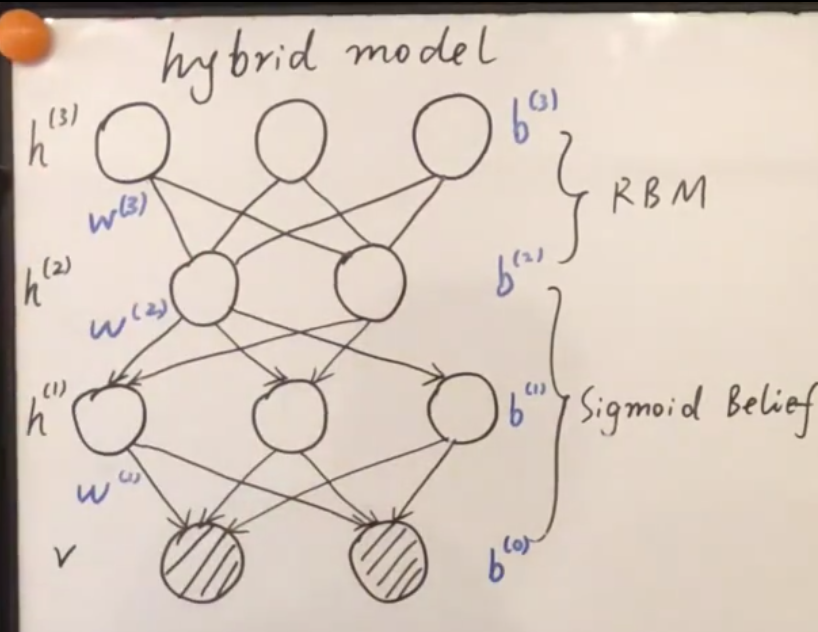 hybrid model
h^(3) b^(3)
w^(3) RBM
h^(2) b^(2)
w^(2)
h^(1) b^(1) Sigmoid Belief
w^(1)
v b^(0)